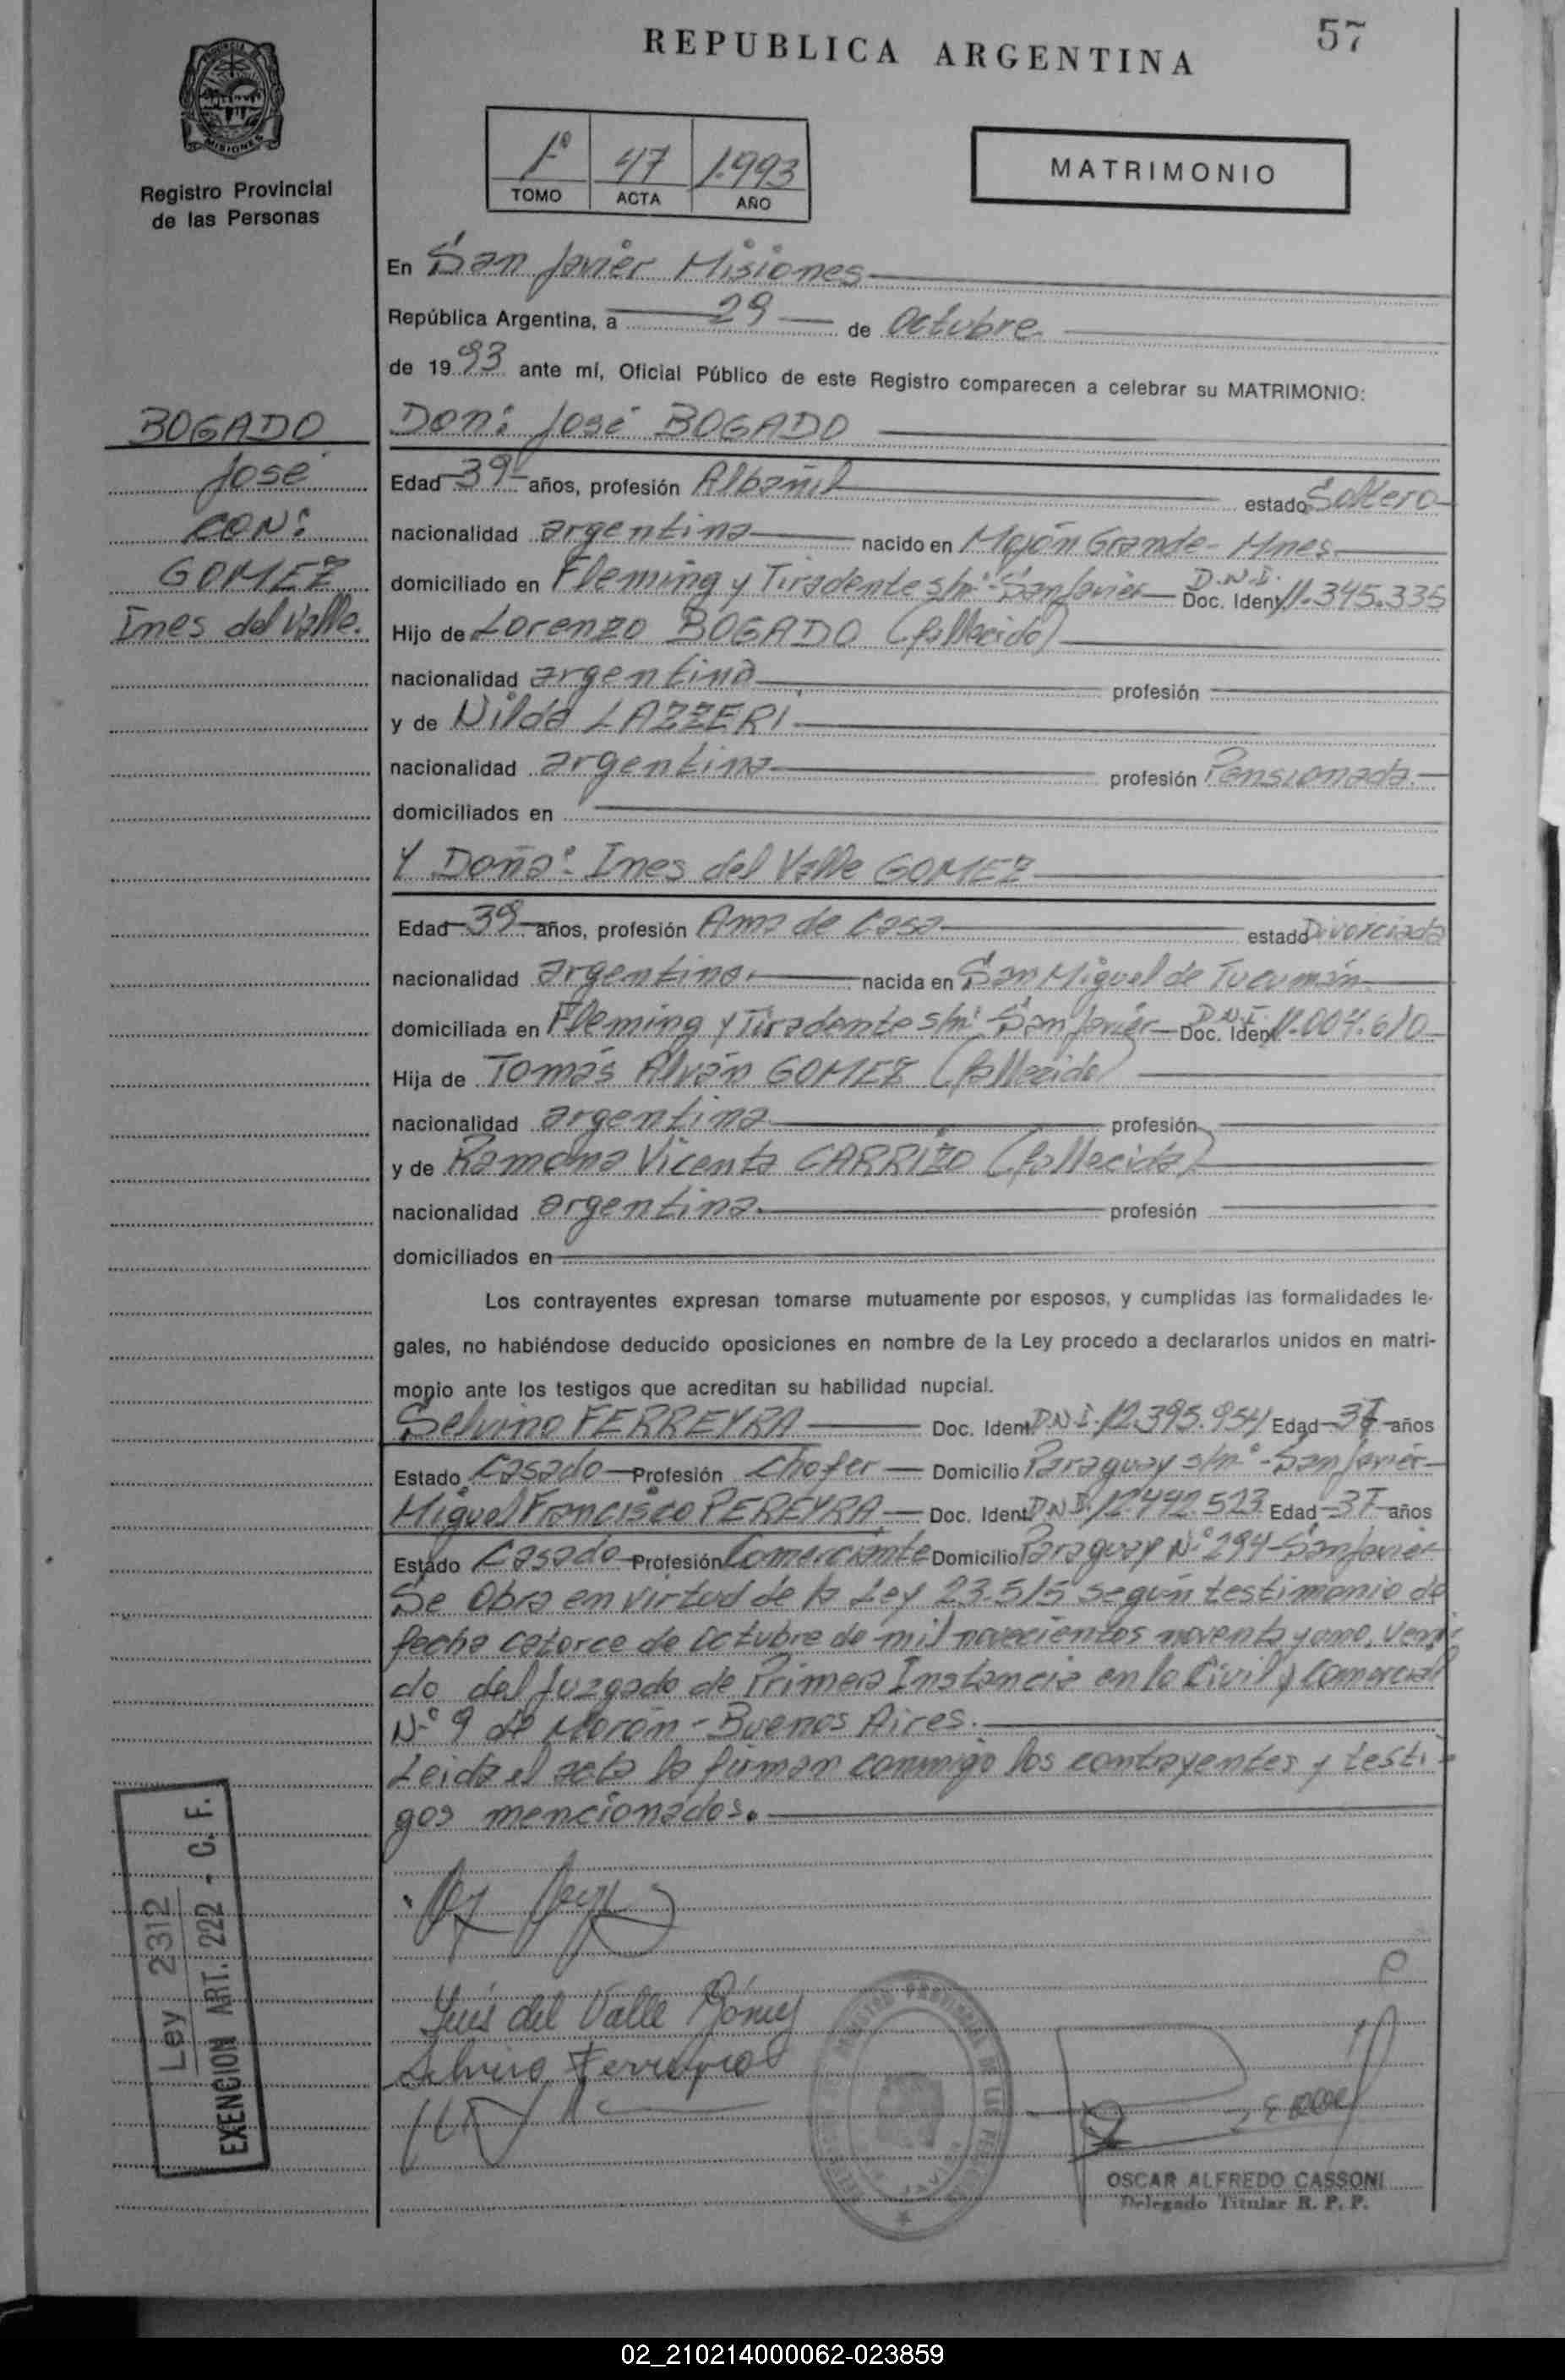 57
REPUBLICA ARGENTINA
MISIONES
Registro Provincial
de las Personas
1º 47 1.993
TOMO ACTA AÑO
MATRIMONIO
En San Javier Misiones
República Argentina, a 29 de Octubre
de 1993 ante mí, Oficial Público de este Registro comparecen a celebrar su MATRIMONIO:
BOGADO
José
CON:
GOMEZ
Ines del Valle.
Don: José BOGADO
Edad 39 años, profesión Albañil estado Soltero
nacionalidad argentina nacido en Mojón Grande - Mnes
domiciliado en Fleming y Tiradente s/nº - San Javier D.N.I. Doc. Ident. 11.345.335
Hijo de Lorenzo BOGADO (fallecido)
nacionalidad argentina profesión
y de Nilda LAZZERI
nacionalidad argentina profesión Pensionada.
domiciliados en
Y Doña: Ines del Valle GOMEZ
Edad 39 años, profesión Ama de Casa estado Divorciada
nacionalidad argentina. nacida en San Miguel de Tucumán
domiciliada en Fleming y Tiradente s/nº San Javier D.N.I. Doc. Ident. 11.004.610
Hija de Tomás Alván GOMEZ (fallecido)
nacionalidad argentina profesión
y de Ramona Vicenta CARRIZO (fallecida)
nacionalidad argentina. profesión
domiciliados en
Los contrayentes expresan tomarse mutuamente por esposos, y cumplidas las formalidades le-
gales, no habiéndose deducido oposiciones en nombre de la Ley procedo a declararlos unidos en matri-
monio ante los testigos que acreditan su habilidad nupcial.
Selvino FERREYRA Doc. Ident. D.N.I. 12.395.954 Edad 37 años
Estado Casado Profesión Chofer Domicilio Paraguay s/nº - San Javier
Miguel Francisco PEREYRA Doc. Ident. D.N.I. 12.442.523 Edad 37 años
Estado Casado Profesión Comerciante Domicilio Paraguay Nº 294 San Javier
Se Obra en virtud de la Ley 23.515 según testimonio de
fecha catorce de Octubre de mil novecientos noventa y uno, veni-
do del Juzgado de Primera Instancia en lo Civil y Comercial
Nº 9 de Morón - Buenos Aires.
Leida el acta la firman conmigo los contrayentes y testi-
gos mencionados.
Ley 2312
EXENCION ART. 222 - C. F.
Inés del Valle Gómez
Selvino Ferreyra
OSCAR ALFREDO CASSONI
Delegado Titular R. P. P.
02_210214000062-023859